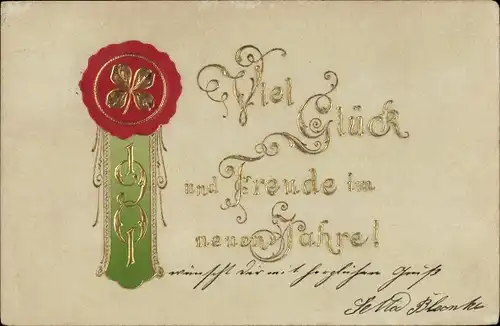 Viel
Glück
und Freude im
neuen Jahre!
1901
wünscht Dir mit herzlichem Gruß